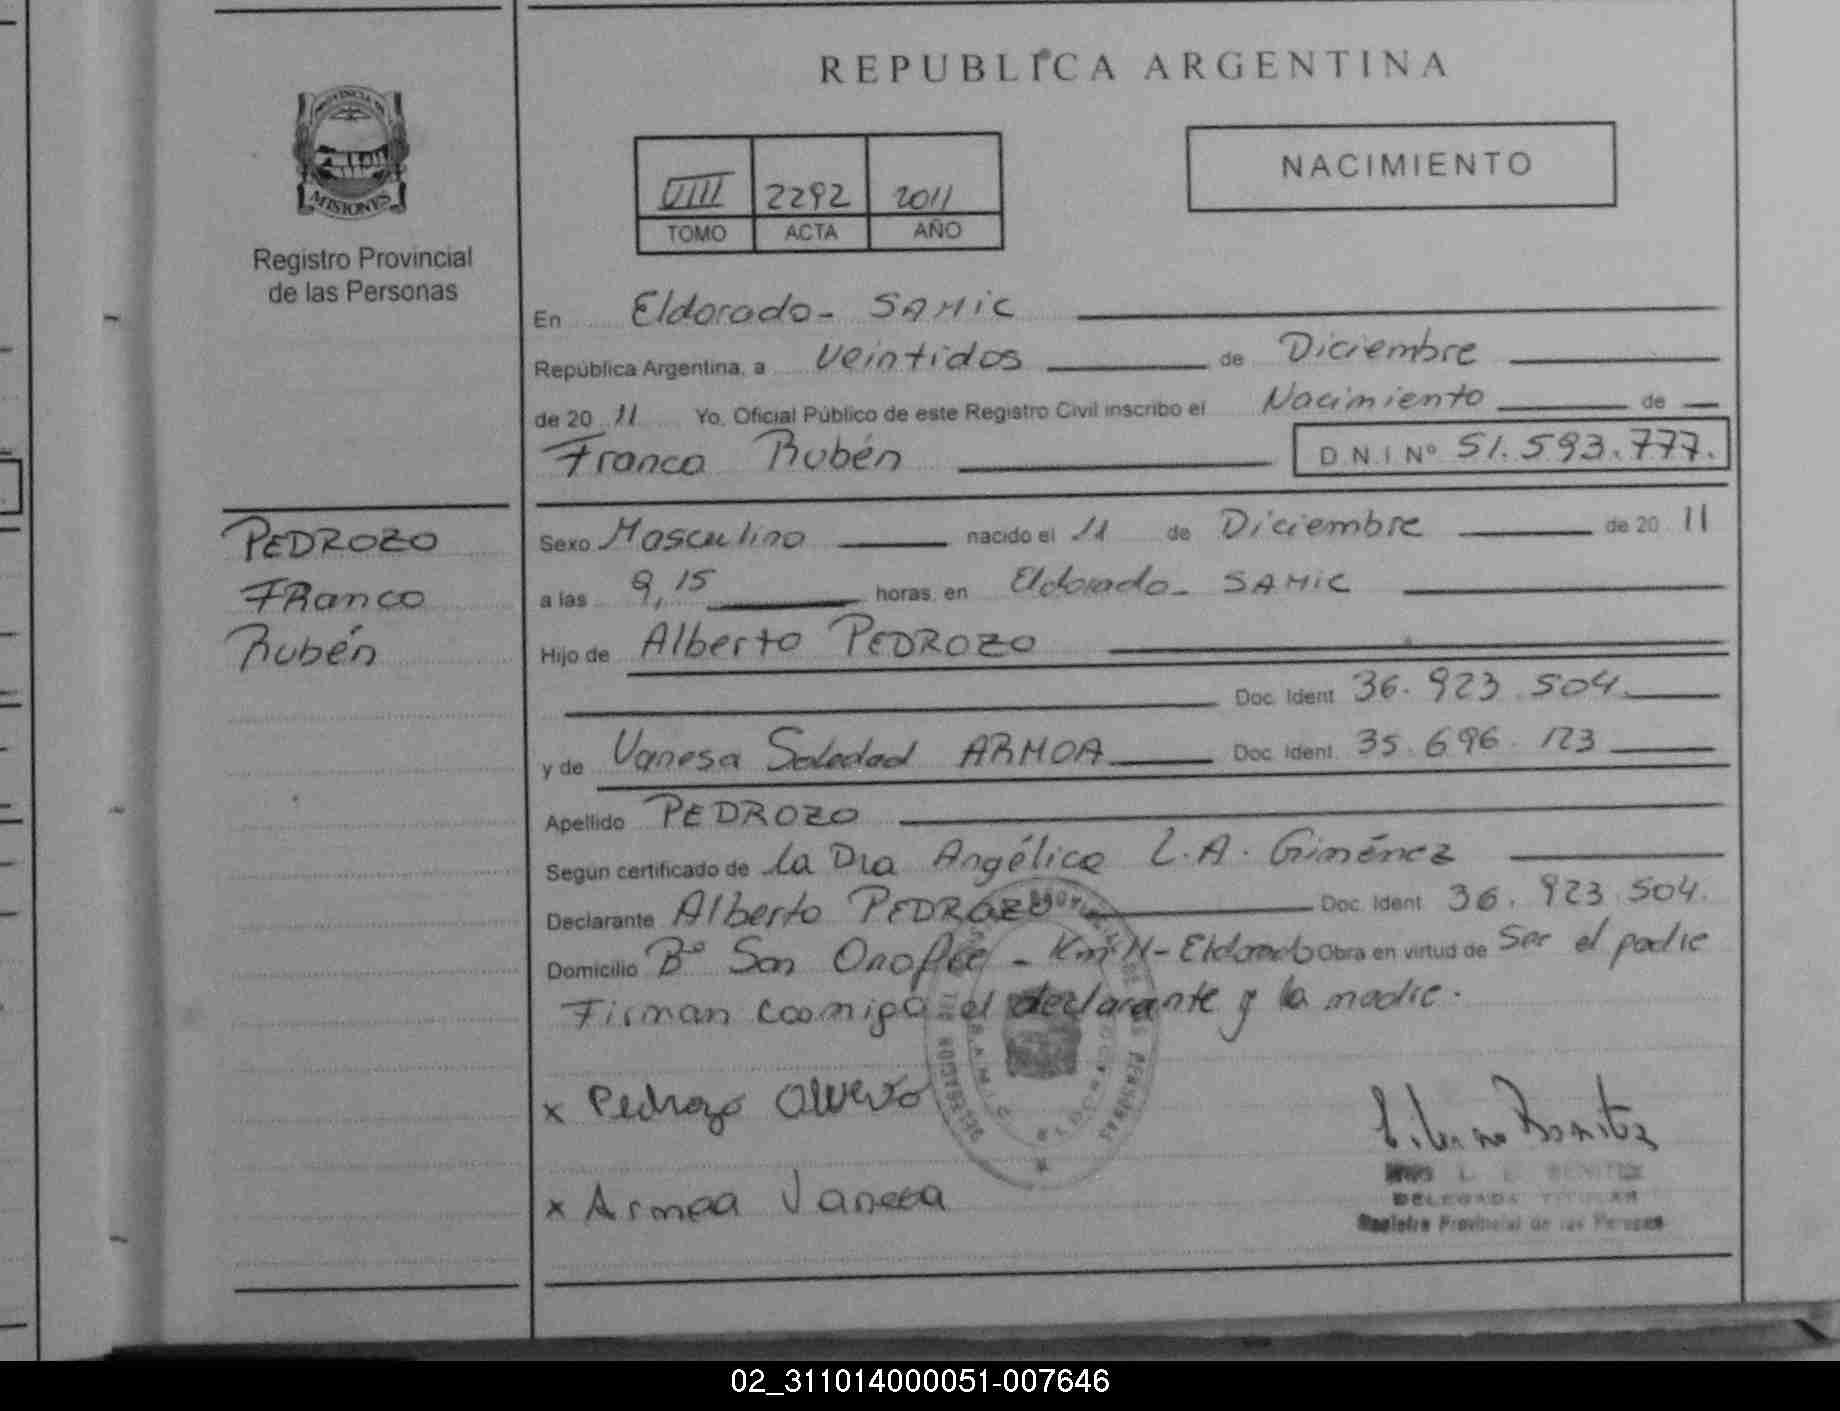 REPUBLICA ARGENTINA
PROVINCIA DE
MISIONES
Registro Provincial
de las Personas
VIII 2292 2011
TOMO ACTA AÑO
NACIMIENTO
En Eldorado - SAMIC
República Argentina, a Veintidos de Diciembre
de 20 11 Yo, Oficial Público de este Registro Civil inscribo el Nacimiento de
Franco Rubén D.N.I Nº 51.593.777.
PEDROZO
Franco
Rubén
Sexo Masculino nacido el 11 de Diciembre de 20 11
a las 9,15 horas, en Eldorado - SAMIC
Hijo de Alberto PEDROZO
Doc. Ident. 36.923.504
y de Vanesa Soledad ARMOA Doc. Ident. 35.696.123
Apellido PEDROZO
Según certificado de la Dra Angélica L.A. Giménez
Declarante Alberto PEDROZO Doc. Ident. 36.923.504.
Domicilio Bº San Onofre - Km 11 - Eldorado Obra en virtud de Ser el padre
Firman conmigo el declarante y la madre.
x Pedrozo
x Armoa Vanesa
BENITEZ
DELEGADA TITULAR
Registro Provincial de las Personas
02_311014000051-007646